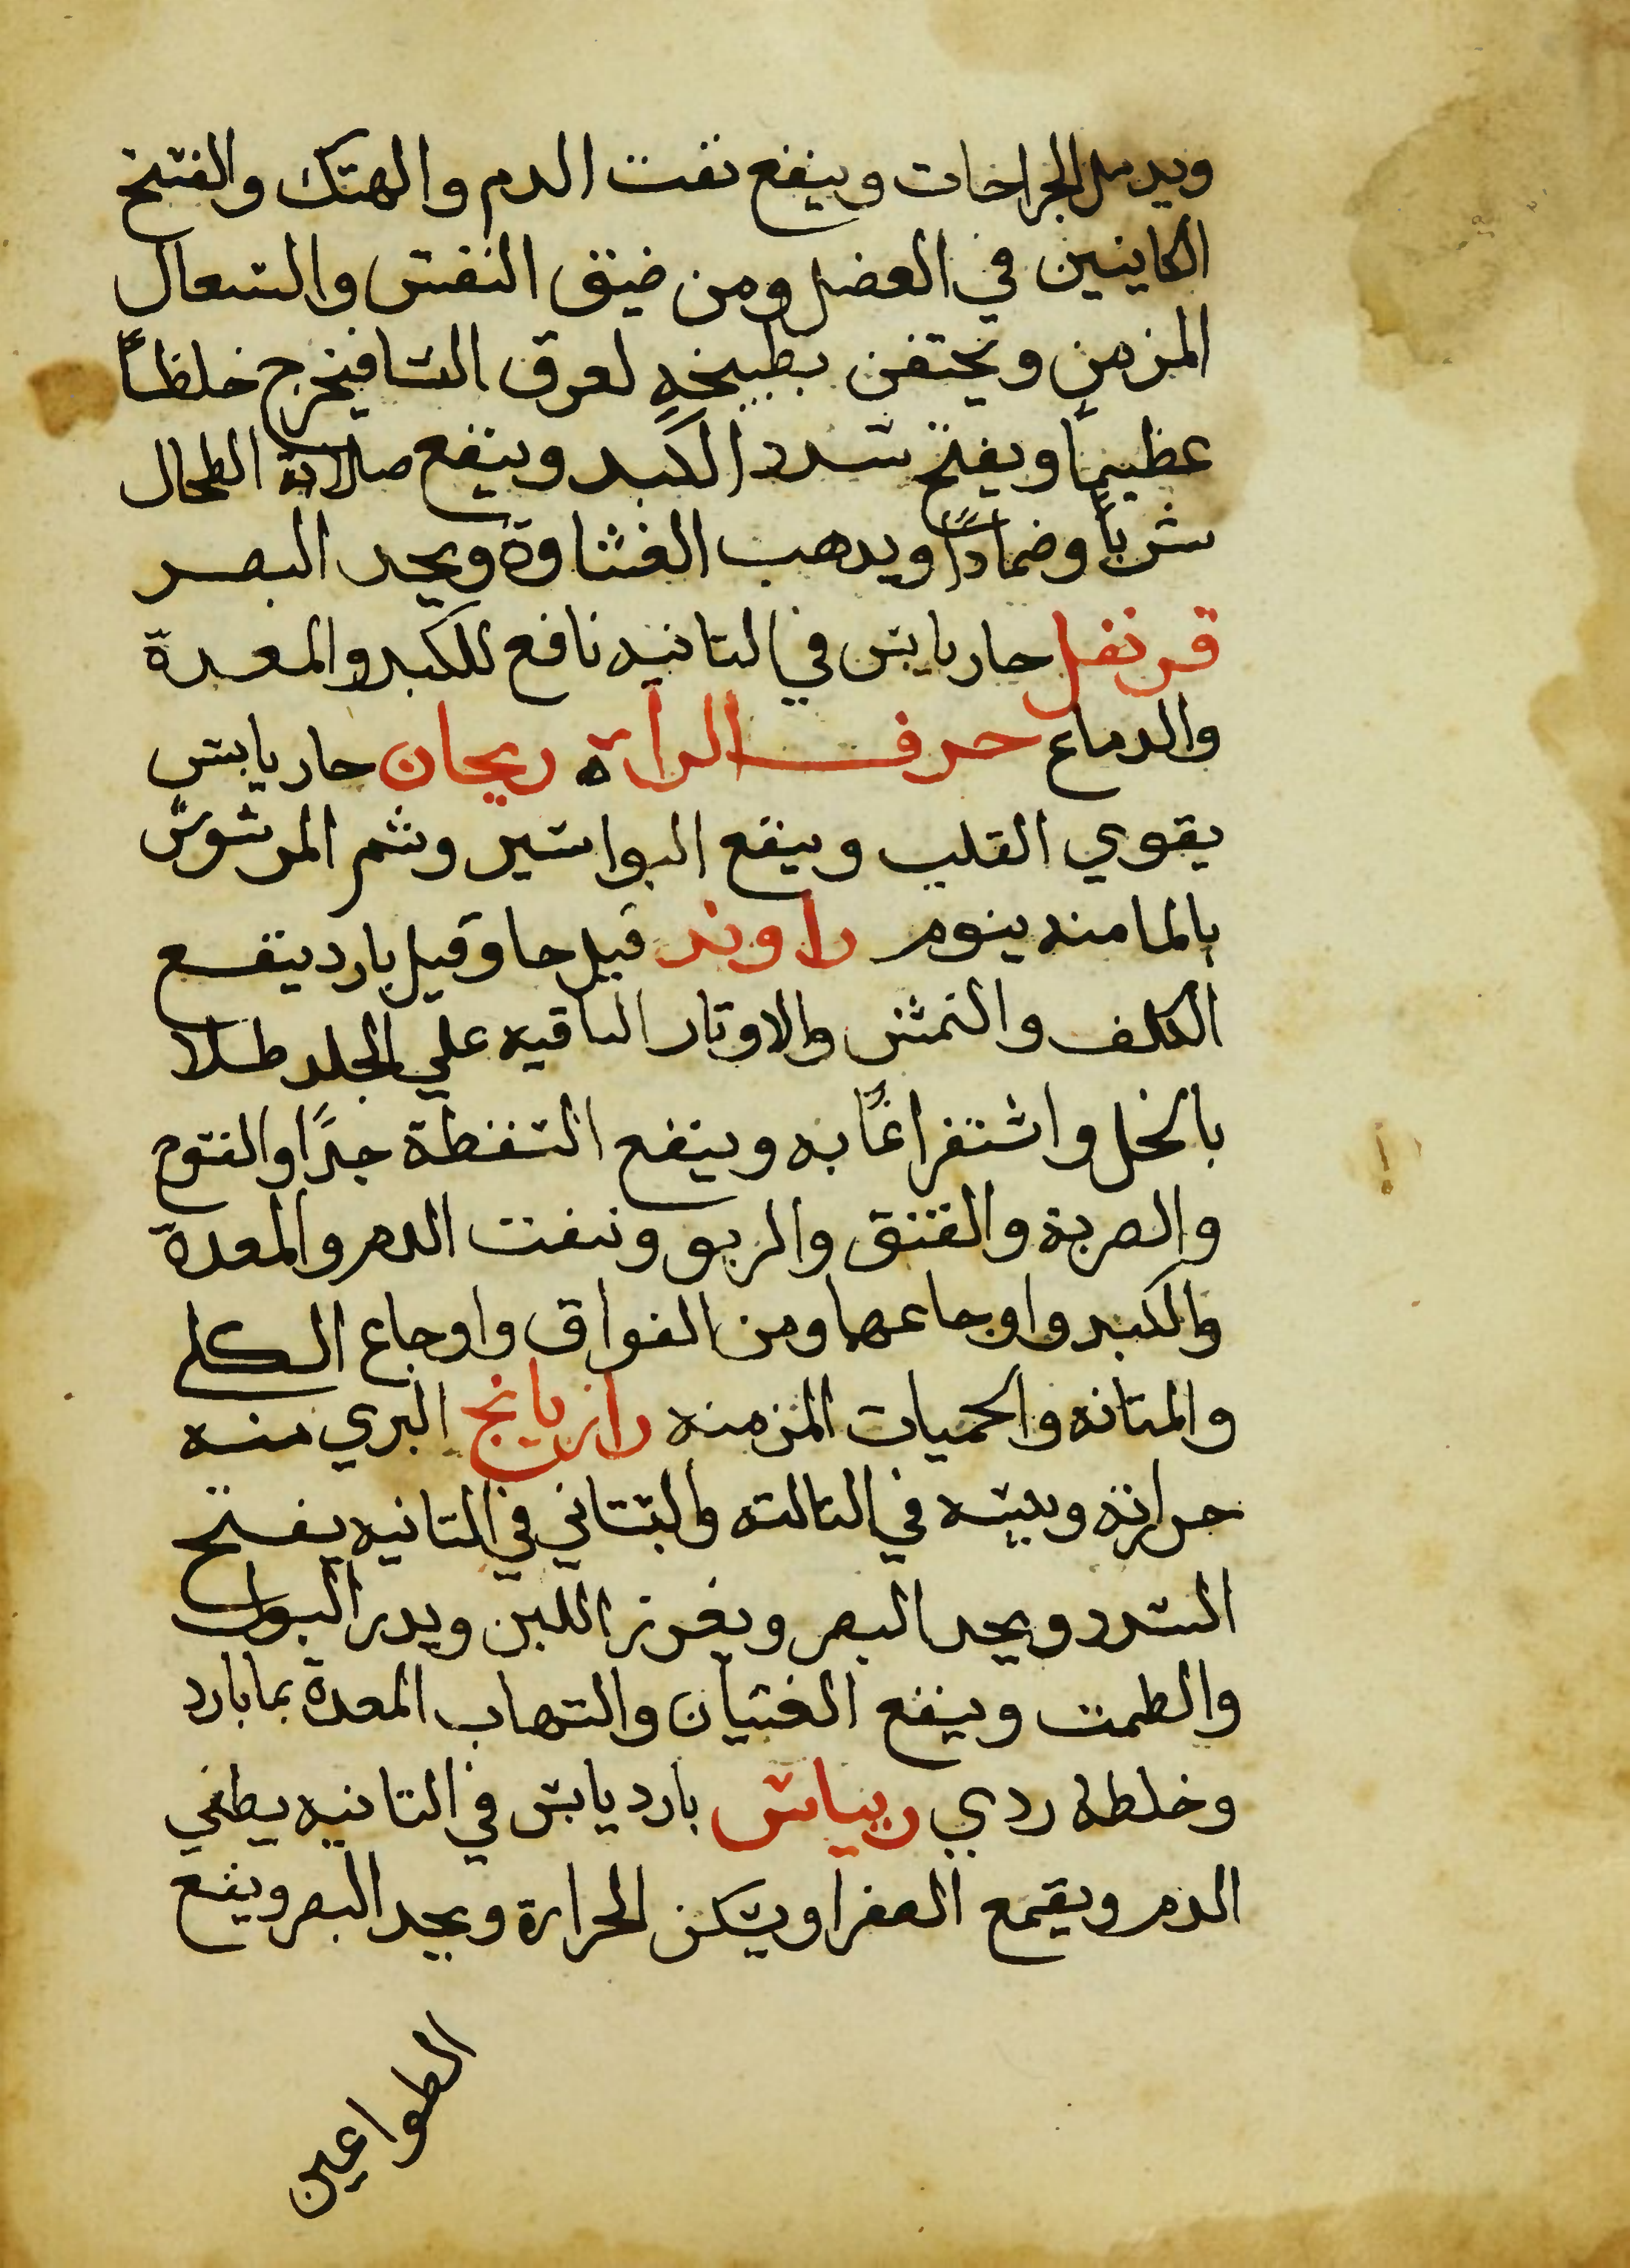 ويدمل الجراحات وينفع نفت الدم والهتك والفتح
الكاينين في العضل ومن ضيق النفس والسعال
المزمن ويحتقن بطبيخه لعرق النسا فيخرج خلطاً
عظيماً ويفتح سدد الكبد وينفع صلابة الطحال
شرباً وضماداً ويدهب الغشاوة ويحد البصر
قرنفل حار يابس في التانيه نافع للكبد والمعدة
والدماغ حرف الراة ريحان حار يابس
يقوي القلب وينفع البواسير وشم المرشوش
بالما منه ينوم راوند قيل حا وقيل بارد ينفع
الكلف والنمش والاوتار الباقيه علي الجلد طلا
بالخل واستفراغاً به وينفع السقطة جداً والفتوح
والضربة والفتق والربو ونفت الدم والمعدة
والكبد واوجاعها ومن الفواق واوجاع الكلي
والمتانه والحميات المزمنه رازيانج البري منه
حرارته ويبسه في التالته والبستاني في التانيه يفتح
السدد ويحد البصر ويغزر اللبن ويدر البول
والطمت وينفع الغتيان والتهاب المعدة بما بارد
وخلطه ردي ريباس بارد يابس في التانيه يطفي
الدم ويقمع الصفرا ويسكن الحرارة ويحد البصر وينفع
الطواعين